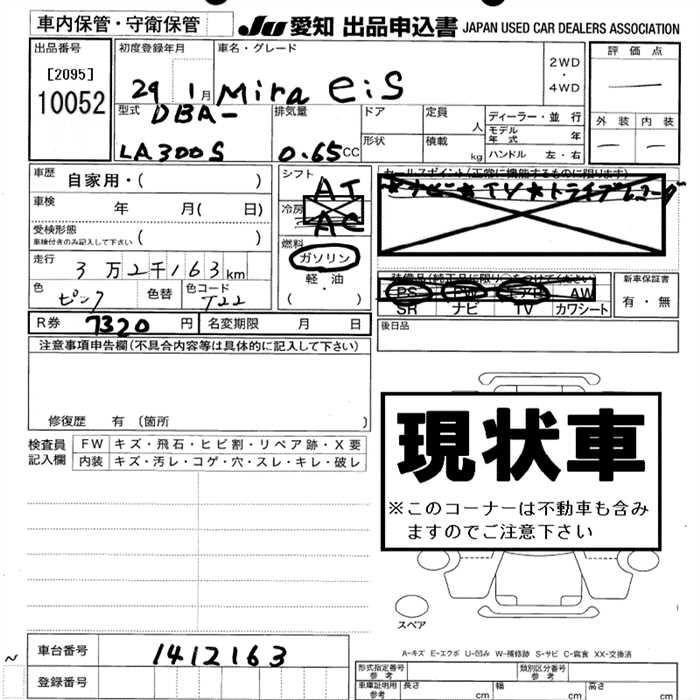 車内保管・守衛保管
JU 愛知 出品申込書 JAPAN USED CAR DEALERS ASSOCIATION
出品番号
[2095]
10052
初度登録年月
29 1月
車名・グレード
Mira e:S
2WD
・
4WD
評価点
外装 内装
型式
DBA-
LA300S
排気量
0.65CC
ドア
形状
定員
人
積載
kg
ディーラー・並行
モデル年式 年
ハンドル 左・右
車歴
自家用・( )
車検
年 月( 日)
受検形態
車検付きのみ記入して下さい ( )
走行
3万2千163km
色
ピンク
色替
色コード
T22
シフト
AT
冷房
AC
燃料
ガソリン
軽・油
( ・ )
セールスポイント(正常に機能するものに限ります)
装備品(純正品に限り○をつけてください)
PS PW エアB AW
SR ナビ TV カワシート
新車保証書
有・無
R券 7320円
名変期限 月 日
後日品
注意事項申告欄(不具合内容等は具体的に記入して下さい)
修復歴 有 〔箇所 〕
検査員記入欄
FW キズ・飛石・ヒビ割・リペア跡・X要
内装 キズ・汚レ・コゲ・穴・スレ・キレ・破レ
現状車
※このコーナーは不動車も含み
ますのでご注意下さい
スペア
A-キズ E-エクボ U-凹み W-補修跡 S-サビ C-腐食 XX-交換済
車台番号
1412163
登録番号
~
形式指定番号
参考
類別区分番号
参考
車庫証明用
参考
長さ cm
幅 cm
高さ cm